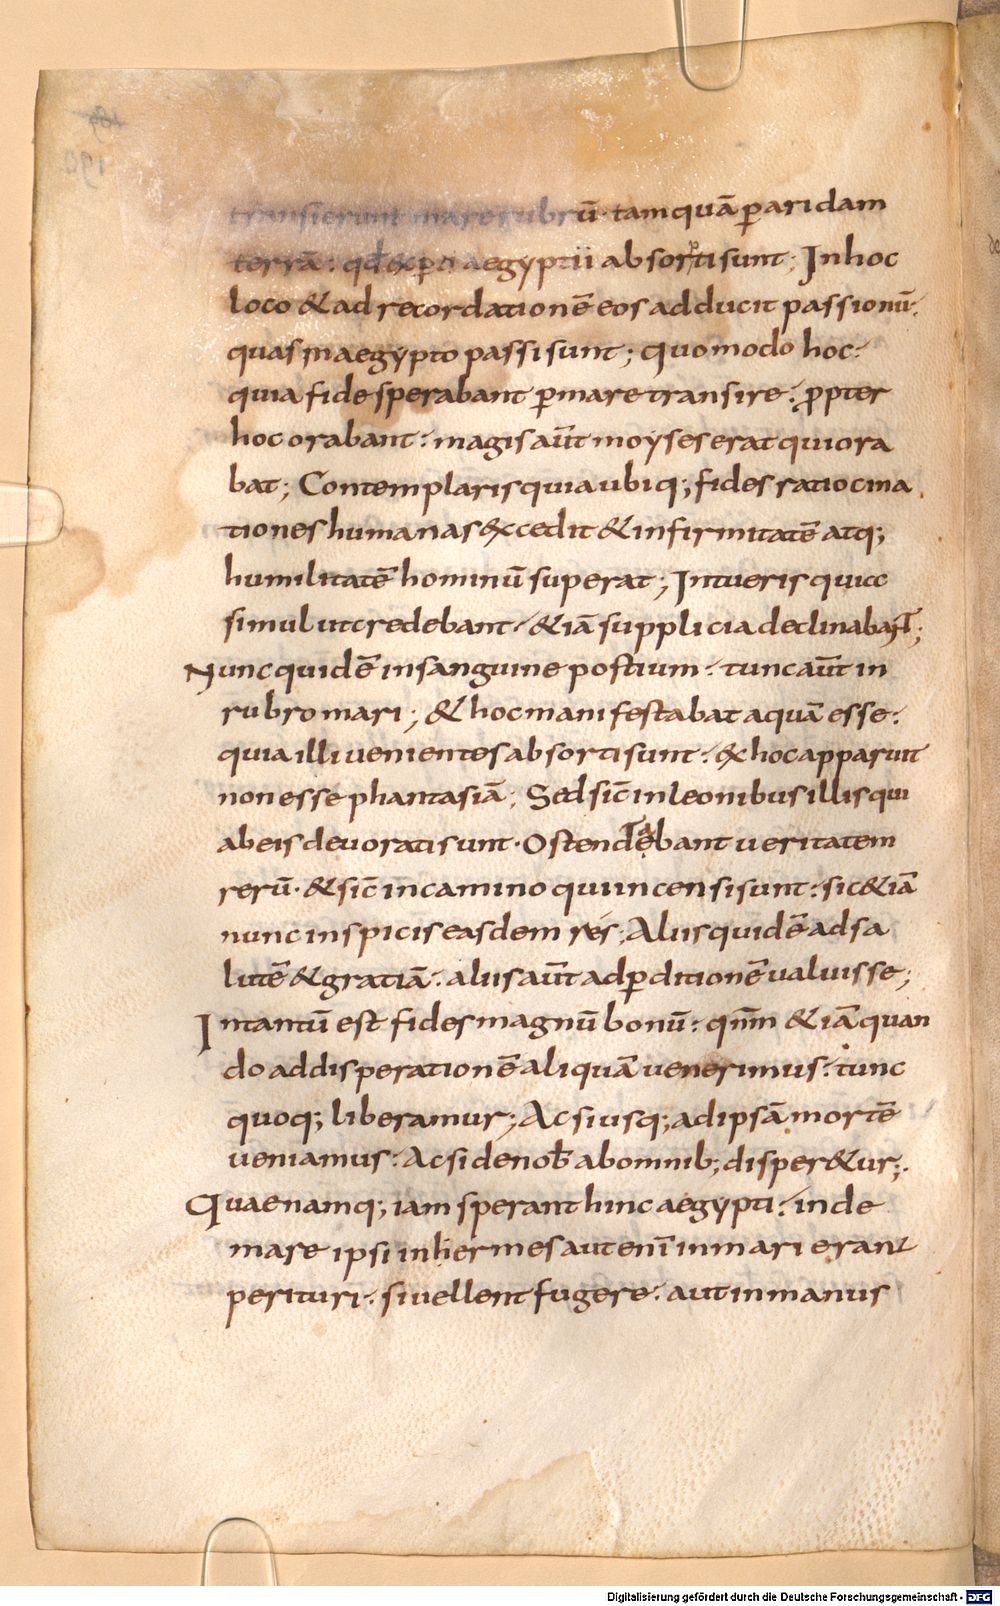 transierunt mare rubrū· tamquā ꝑ aridam
terrā: qđ exꝑti aegyptii absorti sunt; In hoc
loco & ad recordationē eos adducit passionū·
quas in aegypto passi sunt; quomodo hoc:
quia fide sperabant ꝑ mare transire: ꝓpter
hoc orabant: magis aūt moyses erat qui ora
bat; Contemplaris quia ubiq; fides ratiocina
tiones humanas excedit & infirmitatē atq;
humilitatē hominū superat; Intueris quia
simul ut credebant· &iā supplicia declinabant;
Nunc quidē in sanguine postium: tunc aūt in
rubro mari; & hoc manifestabat aquā esse:
quia illi uenientes absorti sunt: ex hoc apparuit
non esse phantasiā; Sed sic̄ in leonibus illis qui
ab eis deuorati sunt· Ostendebant ueritatem
rerū· & sic̄ in camino qui incensi sunt: sic &iā
nunc inspicis easdem res; Aliis quidē ad sa
lutē & gratiā: aliis aūt ad ꝑditionē ualuisse;
Intantū est fides magnū bonū: qm̄ &iā quan
do ad disperationē aliquā uenerimus: tunc
quoq; liberamur; Ac si usq; ad ipsā mortē
ueniamus· Ac si de nob̄ ab omnib; disper&ur;
Quae namq; iam sperant hinc aegypti: inde
mare ipsi inhermes aut eni in mari erant
perituri· si uellent fugere· aut in manus
Digitalisierung gefördert durch die Deutsche Forschungsgemeinschaft - DFG